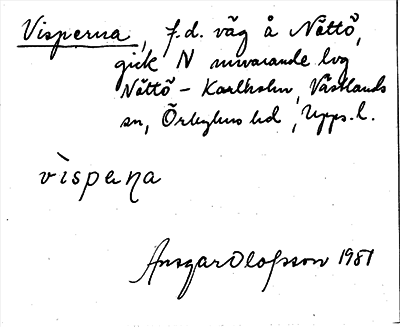 Visperna, f.d. väg å Nöttö,
gick N nuvarande lvg
Nöttö - Karlholm, Västlands
sn, Örbyhus hd, Upps. l.
vìsperna
Ansgar Olofsson 1981